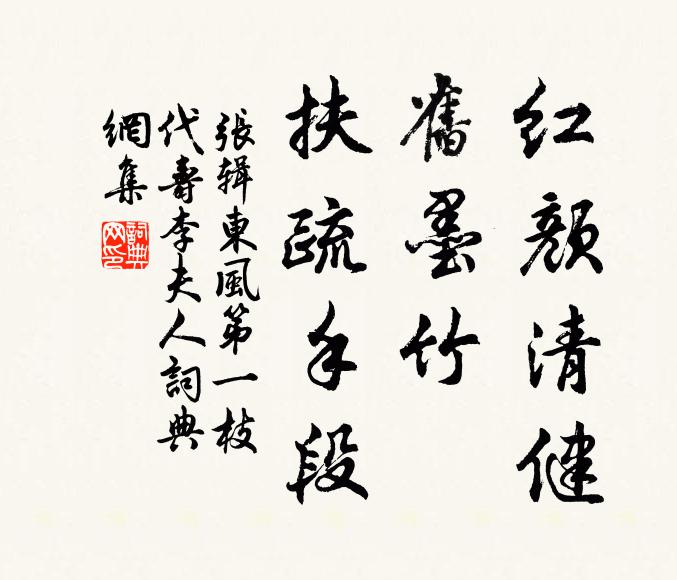 红颜清健
舊墨竹
扶疏手段
張輯東風第一枝
代壽李夫人詞典
網集
詞典
网印